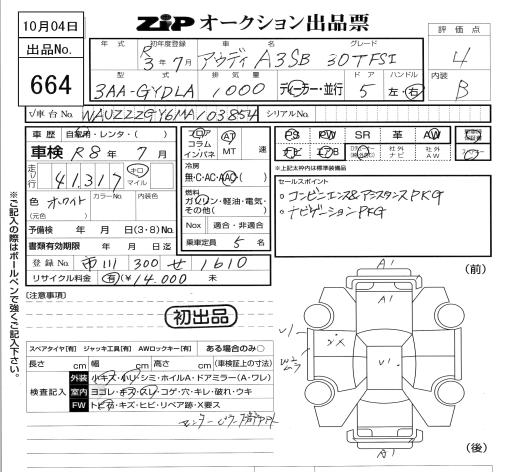 10月04日
ZIP オークション出品票
評価点
4
内装
B
出品No.
664
年式 初年度登録 車名 グレード
R 3年 7月 アウディ A3SB 30TFSI
型式 排気量 ドア ハンドル
3AA-GYDLA 1000 ディーラー・並行 5 左・右
√車台No. WAUZZZGY6MA103854 シリアルNo.
車歴 自家用・レンタ・( )
車検 R8年 7月
走行 41,317 キロ マイル
色 ホワイト カラーNo. 内装色
(元色)
予備検 年 月 日(3・8)No.
書類有効期限 年 月 日迄
登録No. 市川 300 せ 1610
リサイクル料金 有(¥14,000 未
フロア AT
コラム
インパネ MT 速
冷房
無・C・AC・AAC( )
燃料
ガソリン・軽油・電気・
その他( )
Nox 適合・非適合
乗車定員 5 名
PS PW SR 革 AW
ナビ エアB 社外ナビ 社外AW
※上記太枠内は標準装備品
セールスポイント
○コンビニエンス&アシスタンスPKG
○ナビゲーションPKG
(注意事項)
初出品
スペアタイヤ[有] ジャッキ工具[有] AWロックキー[有] ある場合のみ○
長さ cm 幅 cm 高さ cm (車検証上の寸法)
検査記入
外装 小キズ・小ﾘ・シミ・ホイルA・ドアミラー(A・ワレ)
室内 ヨゴレ・キズ・スレ・コゲ・穴・キレ・破れ・ウキ
FW トビ石・キズ・ヒビ・リペア跡・X要ス
※ご記入の際はボールペンで強くご記入下さい。
(前)
A1
A1
U1
X
W2
ムラ
U1
A1
(後)